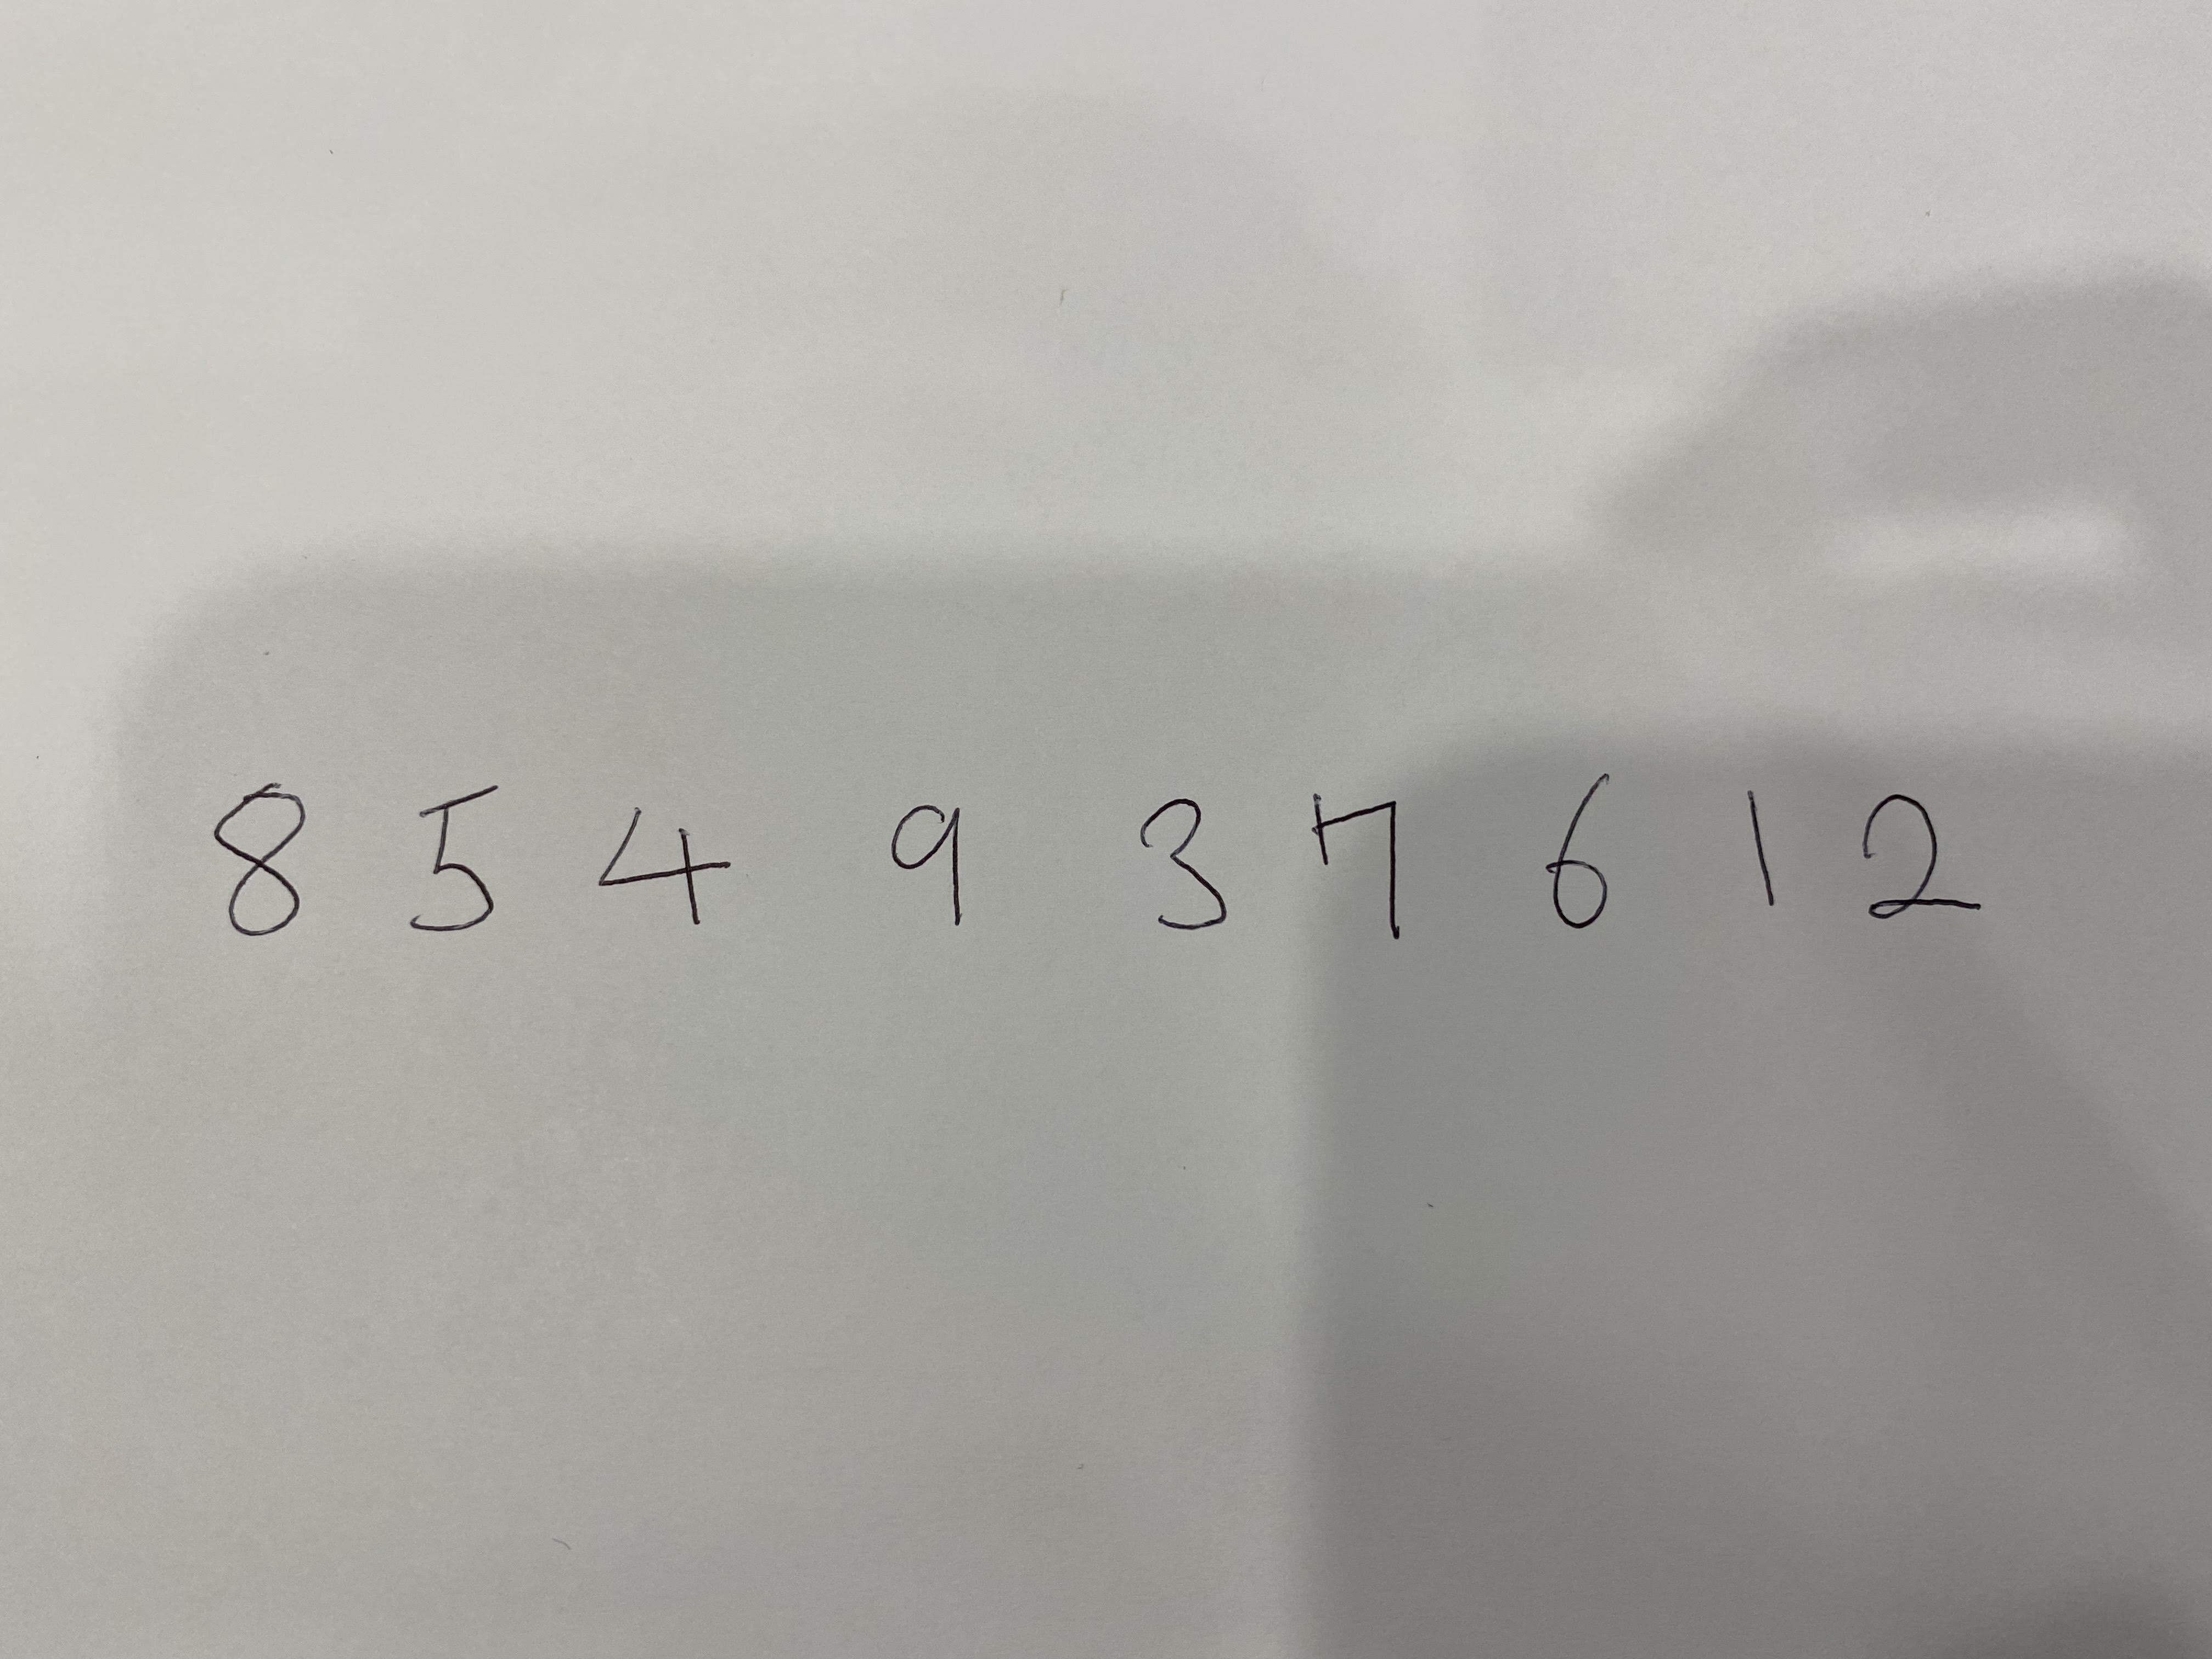 8 5 4 9 3 7 6 1 2